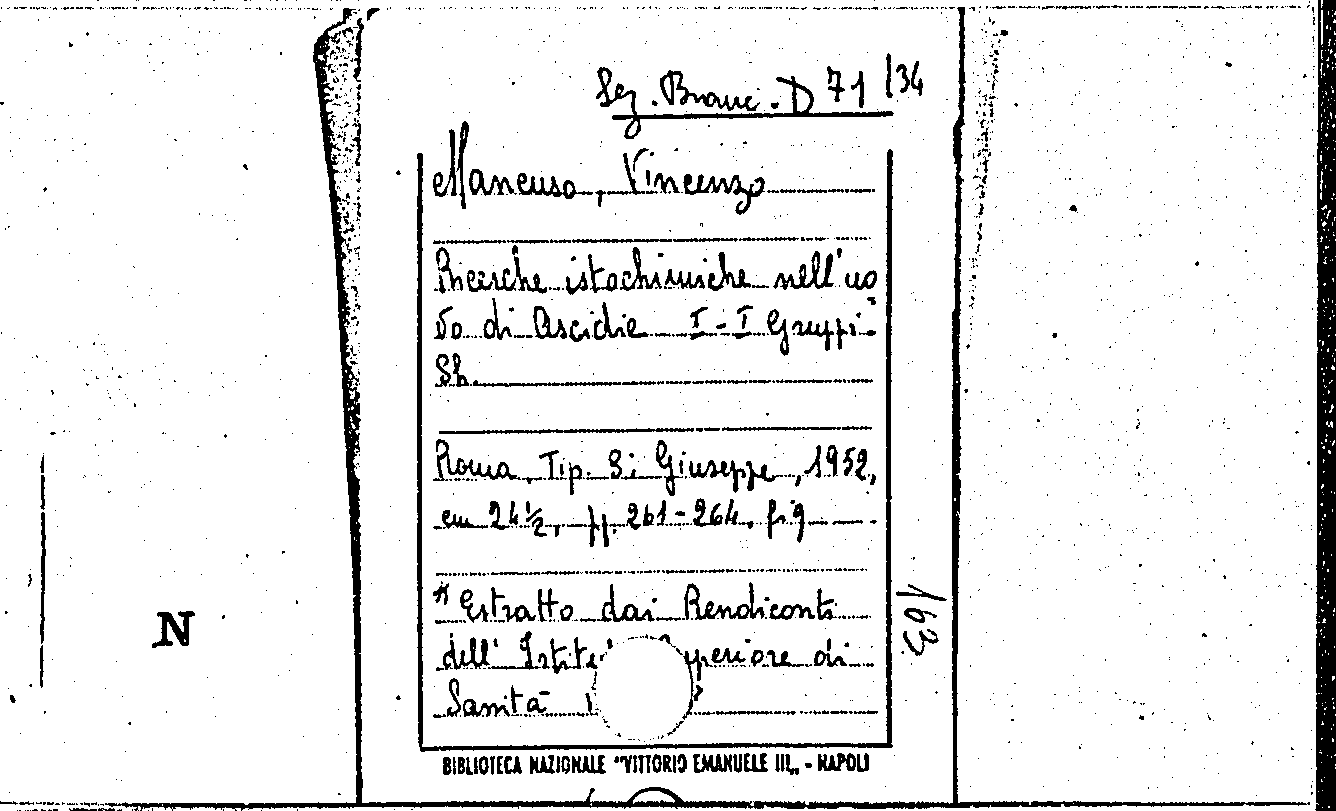 Sez. Branc. D 71/34
Mancuso, Vincenzo
Ricerche istochimiche nell'uo
vo di Ascidie I - I Gruppi
Sh.
Roma, Tip. Di Giuseppe, 1952,
cm 24 ½, pp. 261-264. fig
Estratto dai Rendiconti
dell' Superiore di
Sanità
163
N
BIBLIOTECA NAZIONALE "VITTORIO EMANUELE III„ - NAPOLI